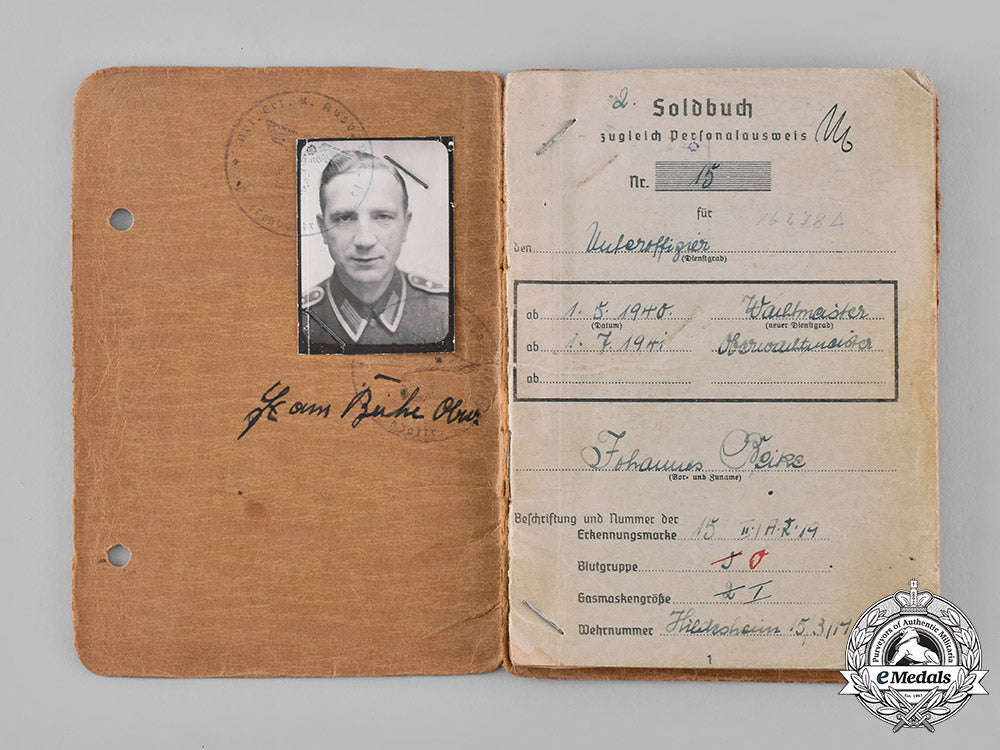 2. Soldbuch
zugleich Personalausweis
Nr. 15
für
16278A
den Unteroffizier
(Dienstgrad)
ab 1. 5. 1940. Wachtmeister
(Datum) (neuer Dienstgrad)
ab 1. 7. 1941 Oberwachtmeister
ab
Johannes
(Vor- und Zuname)
Beschriftung und Nummer der
Erkennungsmarke 15 II./A.R.19
Blutgruppe O
Gasmaskengröße 2 I
Wehrnummer Hildesheim 15/3/
1
Purveyors of Authentic Militaria
eMedals